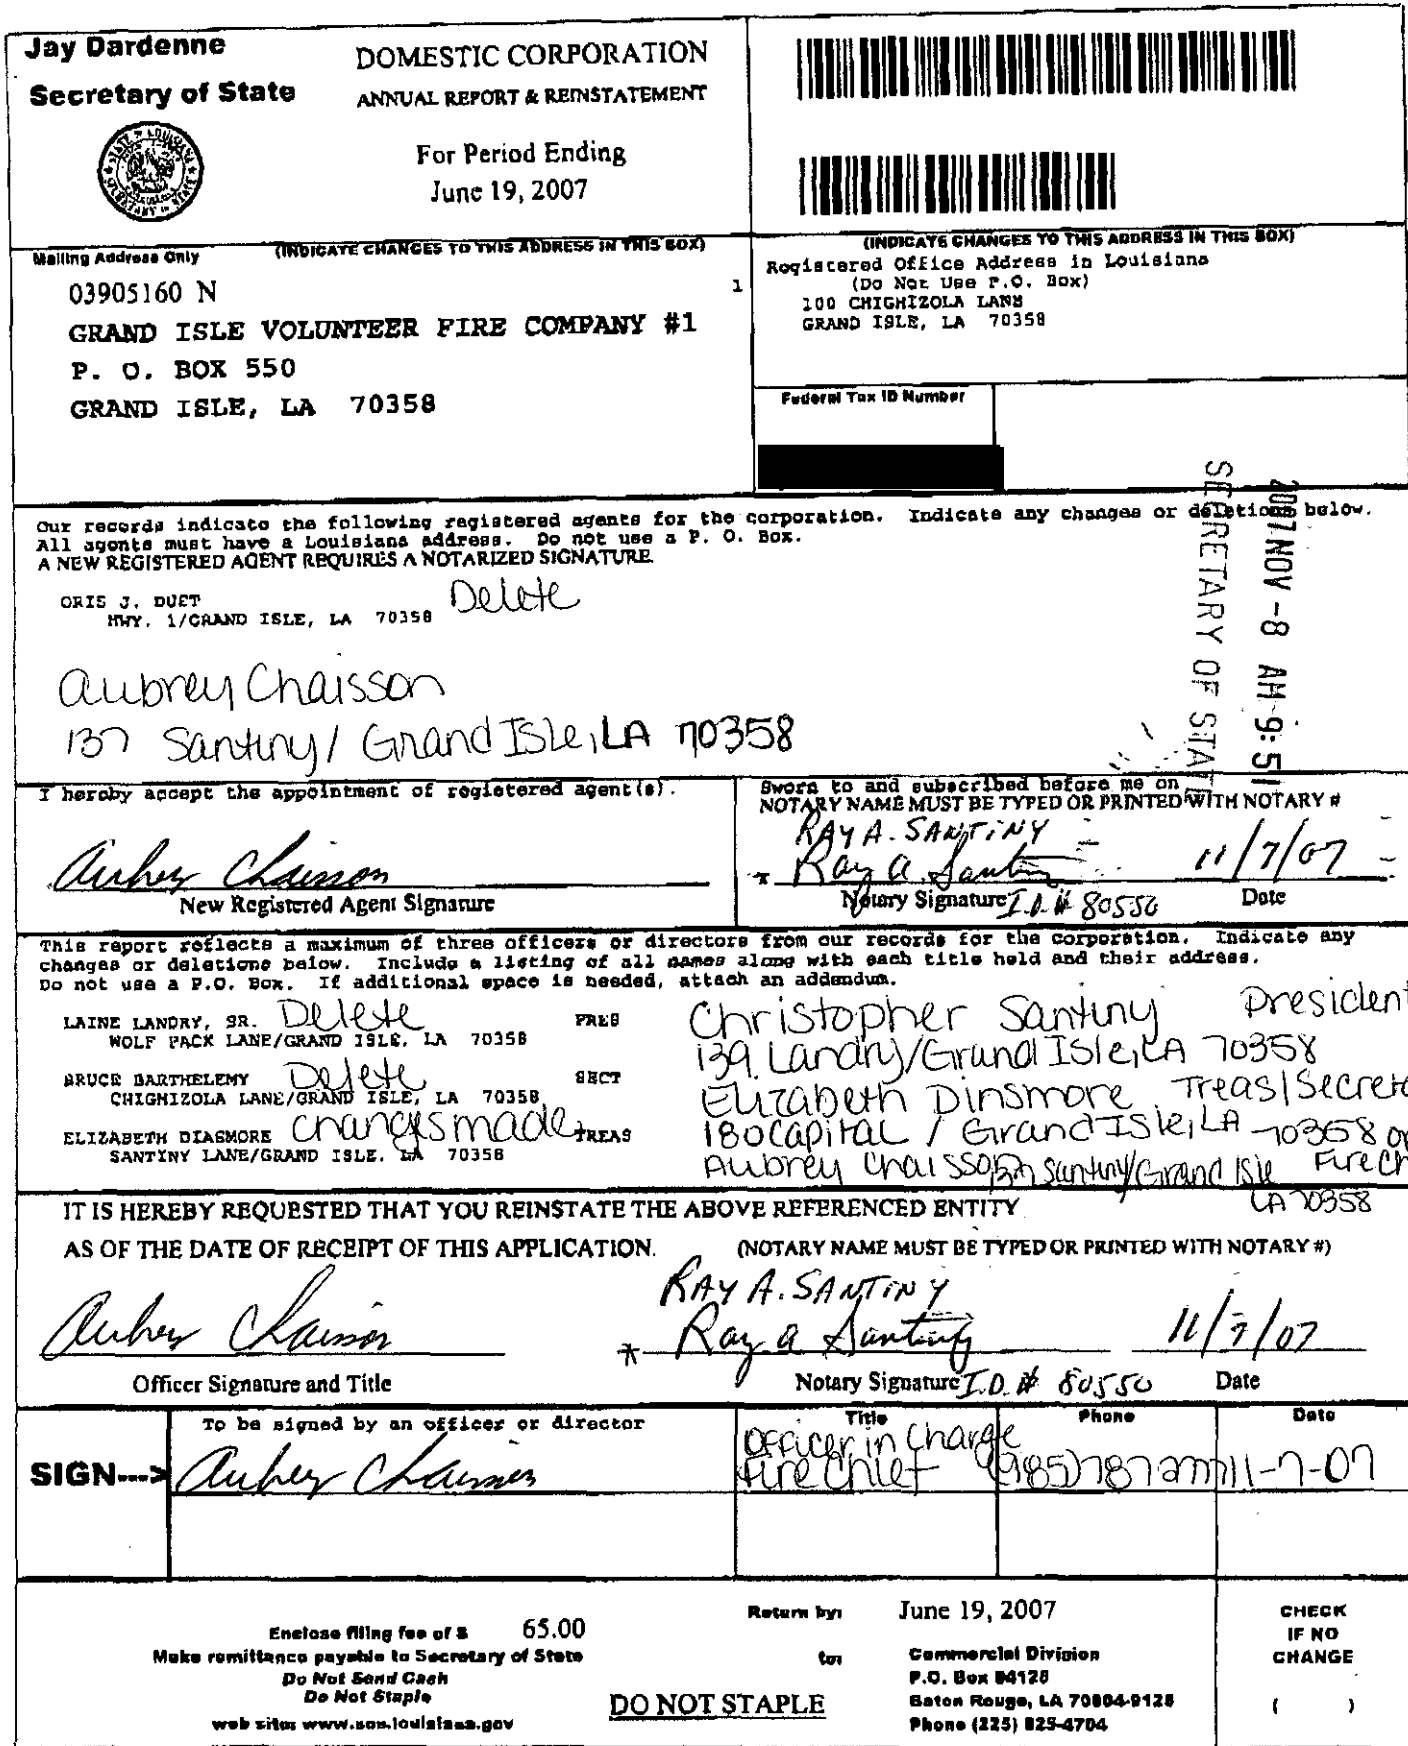 Jay Dardenne
Secretary of State
DOMESTIC CORPORATION
ANNUAL REPORT & REINSTATEMENT
For Period Ending
June 19, 2007
Mailing Address Only
(INDICATE CHANGES TO THIS ADDRESS IN THIS BOX)
03905160 N
GRAND ISLE VOLUNTEER FIRE COMPANY #1
P. O. BOX 550
GRAND ISLE, LA 70358
1
(INDICATE CHANGES TO THIS ADDRESS IN THIS BOX)
Registered Office Address in Louisiana
(Do Not Use P.O. Box)
100 CHIGHIZOLA LANE
GRAND ISLE, LA 70358
Federal Tax ID Number
2007 NOV -8 AM 9:51
SECRETARY OF STATE
Our records indicate the following registered agents for the corporation. Indicate any changes or deletions below.
All agents must have a Louisiana address. Do not use a P. O. Box.
A NEW REGISTERED AGENT REQUIRES A NOTARIZED SIGNATURE.
ORIS J. DUET Delete
HWY. 1/GRAND ISLE, LA 70358
Aubrey Chaisson
137 Santiny / Grand Isle, LA 70358
I hereby accept the appointment of registered agent(s).
Aubrey Chaisson
New Registered Agent Signature
Sworn to and subscribed before me on
NOTARY NAME MUST BE TYPED OR PRINTED WITH NOTARY #
RAY A. SANTINY
* Ray A. Santiny 11/7/07
Notary Signature I.D. # 80550 Date
This report reflects a maximum of three officers or directors from our records for the corporation. Indicate any
changes or deletions below. Include a listing of all names along with each title held and their address.
Do not use a P.O. Box. If additional space is needed, attach an addendum.
LAINE LANDRY, SR. Delete PRES
WOLF PACK LANE/GRAND ISLE, LA 70358
BRUCE BARTHELEMY Delete SECT
CHIGHIZOLA LANE/GRAND ISLE, LA 70358
ELIZABETH DIASMORE changes made TREAS
SANTINY LANE/GRAND ISLE, LA 70358
Christopher Santiny President
139 Landry/Grand Isle, LA 70358
Elizabeth Dinsmore Treas/Secreta
180 Capital / Grand Isle, LA 70358
Aubrey Chaisson 137 Santiny/Grand Isle Fire Ch
LA 70358
IT IS HEREBY REQUESTED THAT YOU REINSTATE THE ABOVE REFERENCED ENTITY
AS OF THE DATE OF RECEIPT OF THIS APPLICATION.
(NOTARY NAME MUST BE TYPED OR PRINTED WITH NOTARY #)
RAY A. SANTINY
Aubrey Chaisson
* Ray A Santiny 11/7/07
Officer Signature and Title
Notary Signature I.D. # 80550 Date
SIGN--->
To be signed by an officer or director
Aubrey Chaisson
Title
Officer in Charge
Fire Chief
Phone
(985)787
Date
11-7-07
Enclose filing fee of $ 65.00
Make remittance payable to Secretary of State
Do Not Send Cash
Do Not Staple
web site: www.sos.louisiana.gov
DO NOT STAPLE
Return by: June 19, 2007
to: Commercial Division
P.O. Box 94125
Baton Rouge, LA 70804-9125
Phone (225) 925-4704
CHECK
IF NO
CHANGE
( )